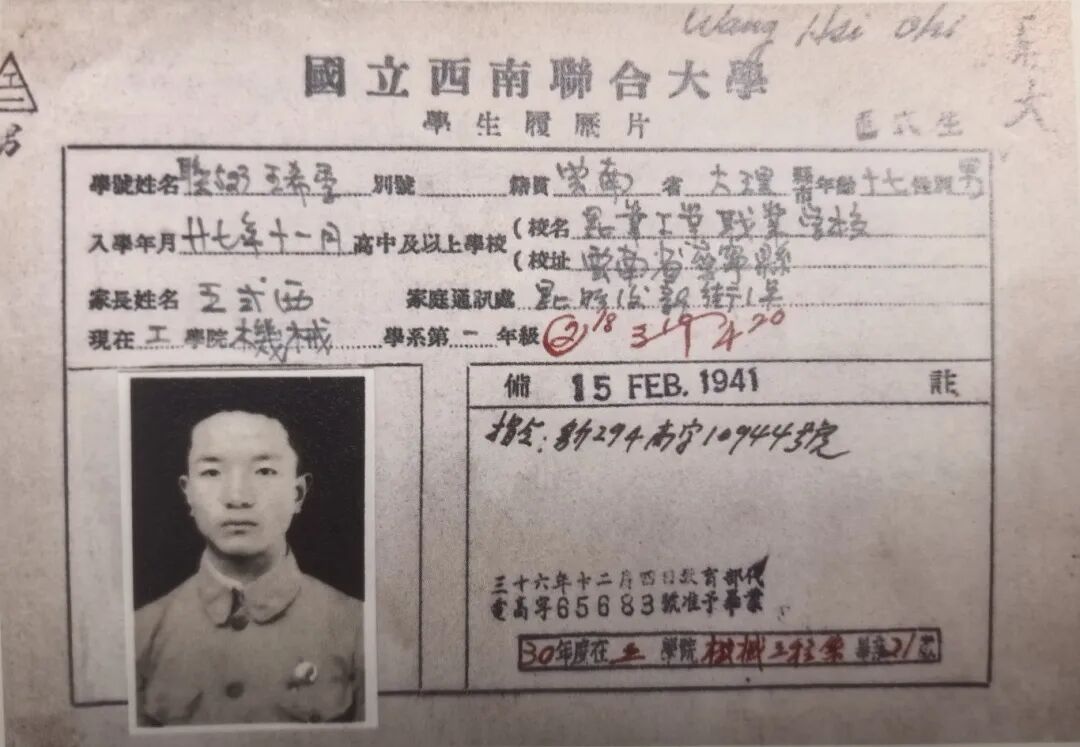 Wang Hsi Chi
工
國立西南聯合大學
學生履歷片
舊式生
男
學號姓名 聯523 王希季 別號 籍貫 雲南 省 大理 縣市 年齡 十七 性別 男
入學年月 廿七年十一月 高中及以上學校 (校名 工業職業學校
(校址 雲南省 縣
家長姓名 王式西 家庭通訊處 街
現在 工 學院 機械 學系第 一 年級 2 18 3 19 4 20
備 15 FEB. 1941 註
指令: 294 高字10944號
三十六年十二月四日教育部代
電高字65683號准予畢業
30年度在 工 學院 機械工程系 畢業